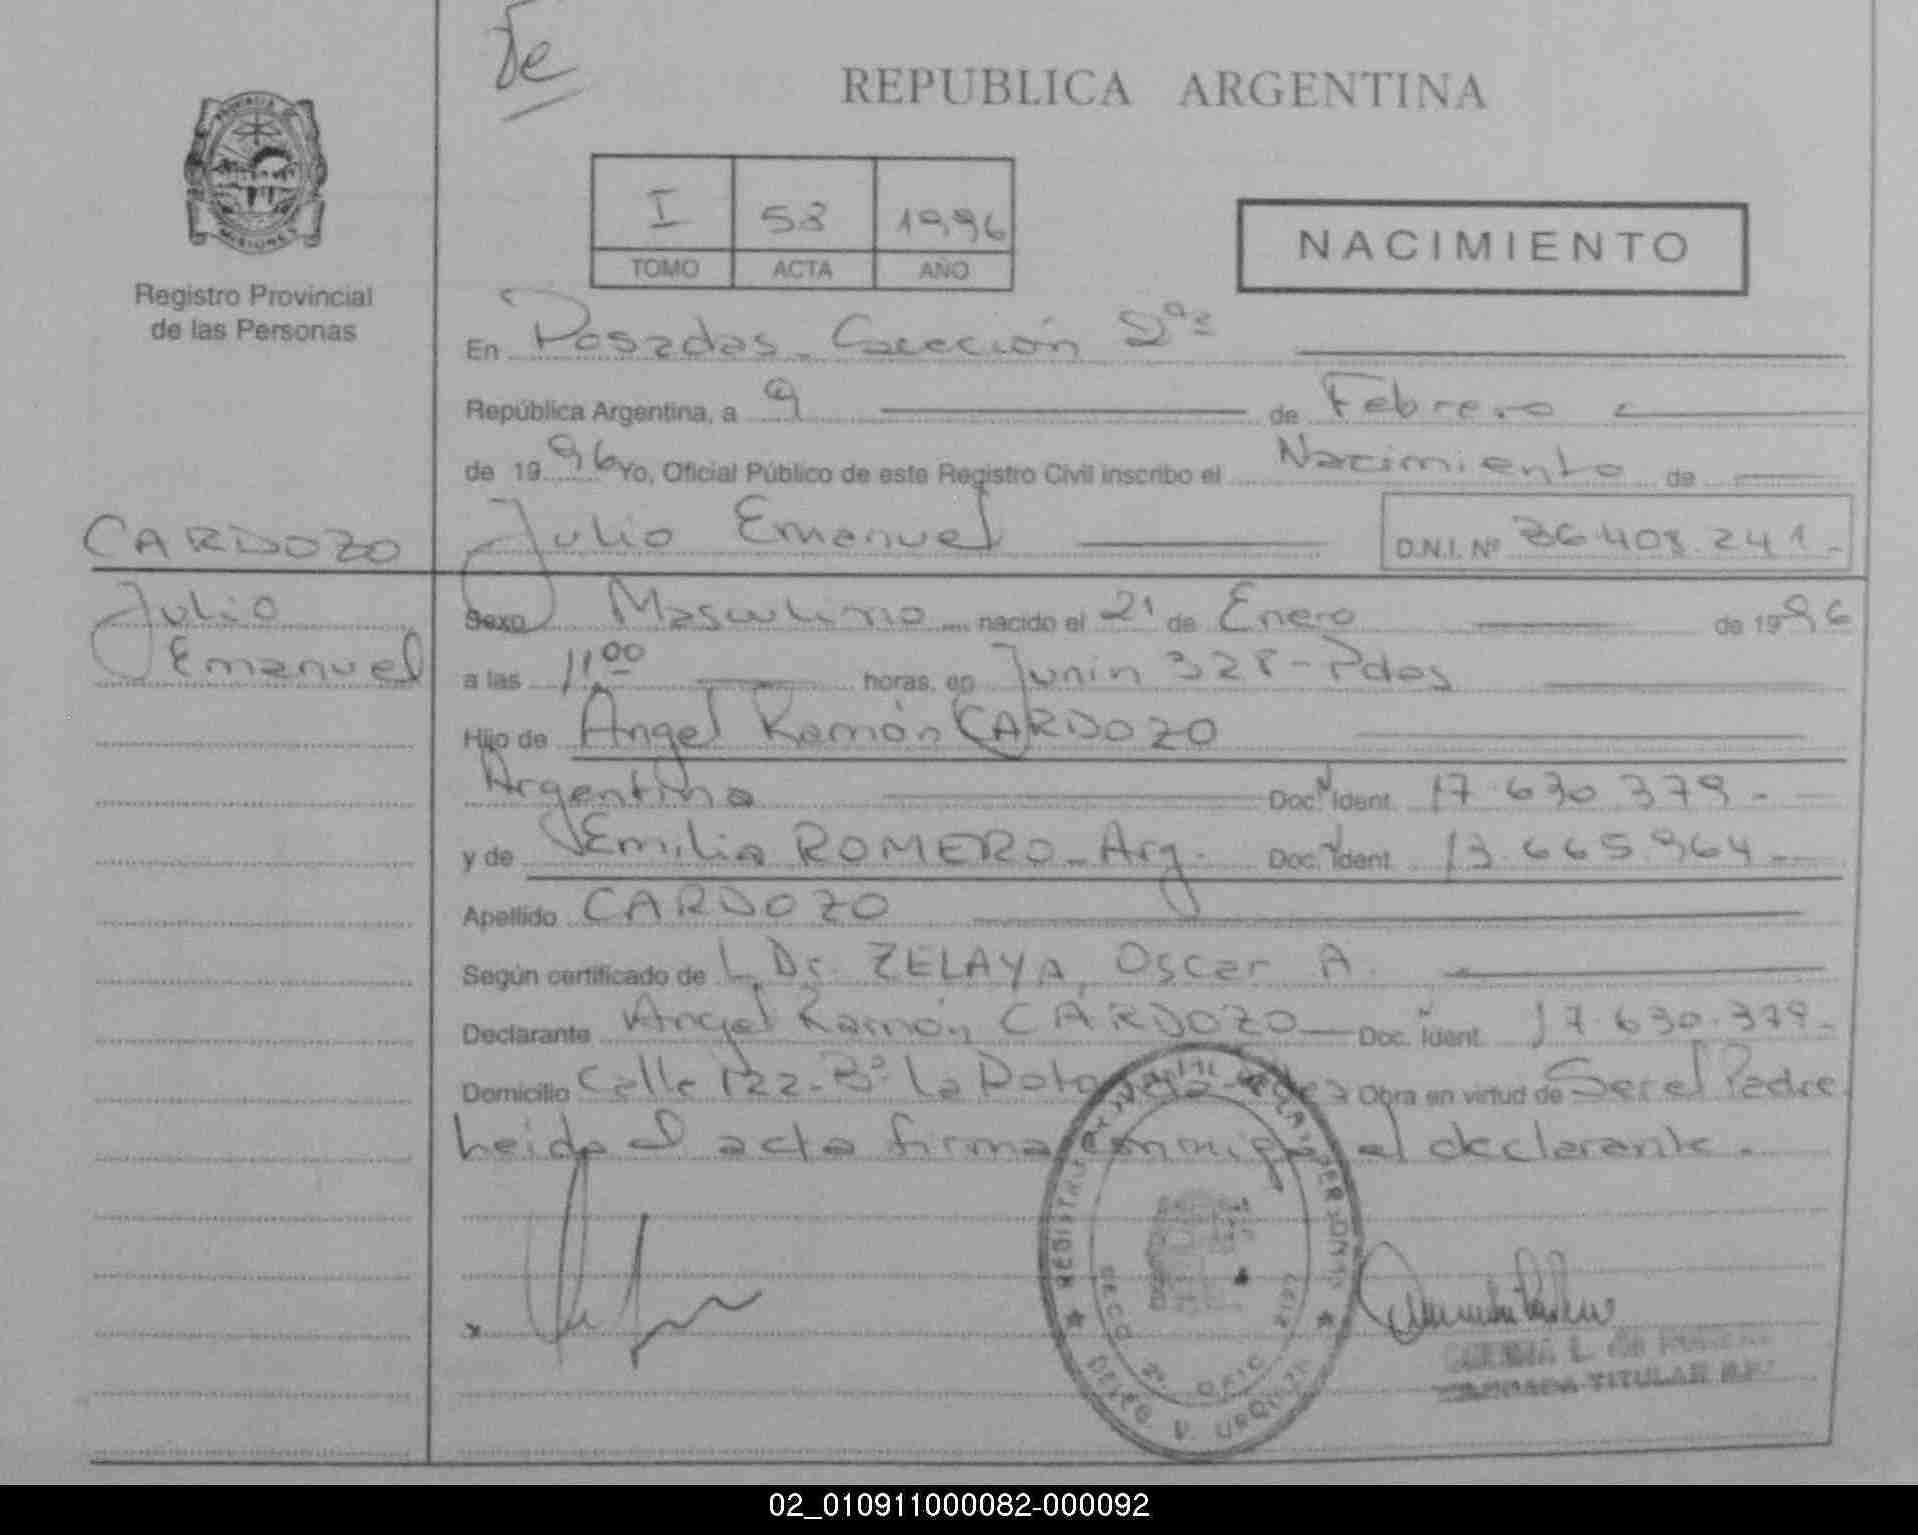 De
REPUBLICA ARGENTINA
MISIONES
Registro Provincial
de las Personas
I 53 1996
TOMO ACTA AÑO
NACIMIENTO
En Posadas - Sección 2ª
República Argentina, a 9 de Febrero
de 1996 Yo, Oficial Público de este Registro Civil inscribo el Nacimiento de
CARDOZO
Julio Emanuel D.N.I. Nº 36.408.241.-
Julio
Emanuel
Sexo Masculino nacido el 21 de Enero de 1996
a las 11,00 horas, en Junin 328 - Pdas
Hijo de Angel Ramón CARDOZO
Argentino Doc. Ident. 17.630.379.-
y de Emilia ROMERO - Arg. Doc. Ident. 13.665.964 -
Apellido CARDOZO
Según certificado de Dr. ZELAYA, Oscar A.
Declarante Angel Ramón CARDOZO - Doc. Ident. 17.630.379-
Domicilio Calle 122 - Bº La Obra en virtud de Ser el Padre
Leida el acta firma conmigo el declarante.
REGISTRO PROVINCIAL DE LAS PERSONAS
SECC. 2ª OFIC.
DELEG. V. URQUIZA
TITULAR
02_010911000082-000092